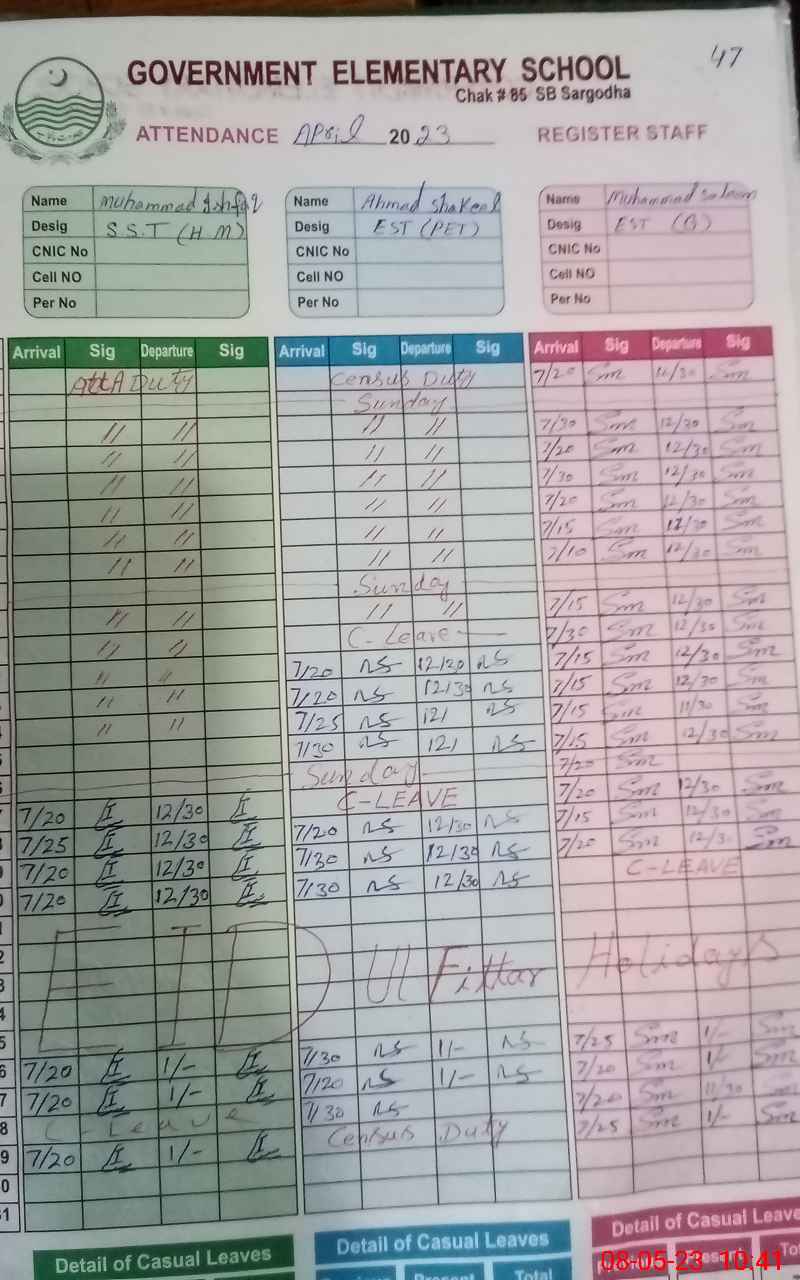 47
GOVERNMENT ELEMENTARY SCHOOL
Chak # 85 SB Sargodha
ATTENDANCE April 2023 REGISTER STAFF
Name Muhammad Ishfaq Name Ahmad Shakeel Name Muhammad Saleem
Desig S.S.T (H M) Desig EST (PET) Desig EST (G)
CNIC No CNIC No CNIC No
Cell NO Cell NO Cell NO
Per No Per No Per No
Arrival Sig Departure Sig Arrival Sig Departure Sig Arrival Sig Departure Sig
AttA Duty Census Duty 7/20 Sm 11/30 Sm
Sunday
// // // // 7/30 Sm 12/30 Sm
// // // // 7/20 Sm 12/30 Sm
// // // // 7/30 Sm 12/30 Sm
// // // // 7/20 Sm 12/30 Sm
// // // // 7/15 Sm 12/30 Sm
// // // // 7/10 Sm 12/30 Sm
Sunday
// // // // 7/15 Sm 12/30 Sm
// // C-Leave 7/30 Sm 12/30 Sm
// // 7/20 NS 12/20 NS 7/15 Sm 12/30 Sm
// // 7/20 NS 12/30 NS 7/15 Sm 12/30 Sm
// // 7/25 NS 12/ NS 7/15 Sm 11/30 Sm
7/30 NS 12/ NS 7/15 Sm 12/30 Sm
Sunday 7/20 Sm
7/20 I 12/30 I C-LEAVE 7/20 Sm 12/30 Sm
7/25 I 12/30 I 7/20 NS 12/30 NS 7/15 Sm 12/30 Sm
7/20 I 12/30 I 7/30 NS 12/30 NS 7/20 Sm 12/3 Sm
7/20 I 12/30 I 7/30 NS 12/30 NS C-LEAVE
EID Ul Fittar Holidays
7/20 I 1/- I 7/30 NS 1/- NS 7/25 Sm 1/- Sm
7/20 I 1/- I 7/20 NS 1/- NS 7/20 Sm 1/- Sm
C-Leave 7/30 NS 7/20 Sm 11/30 Sm
7/20 I 1/- I Census Duty 7/25 Sm 1/- Sm
Detail of Casual Leaves Detail of Casual Leaves Detail of Casual Leave
Present Total
08-05-23 10:41